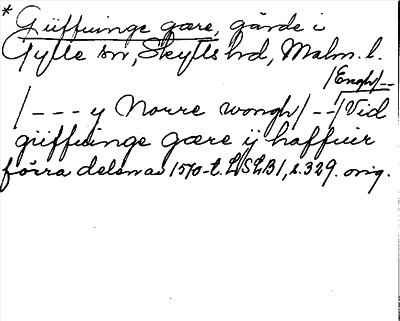 * Güffuinge gære, gärde i
Gylle sn, Skytts hd, Malm. l.
/Engh/--
/--- y Norre wongh/--/Vid
güffuinge gære ÿ haffuer
förra delen as 1570-t. LSLB1, s. 329. orig.